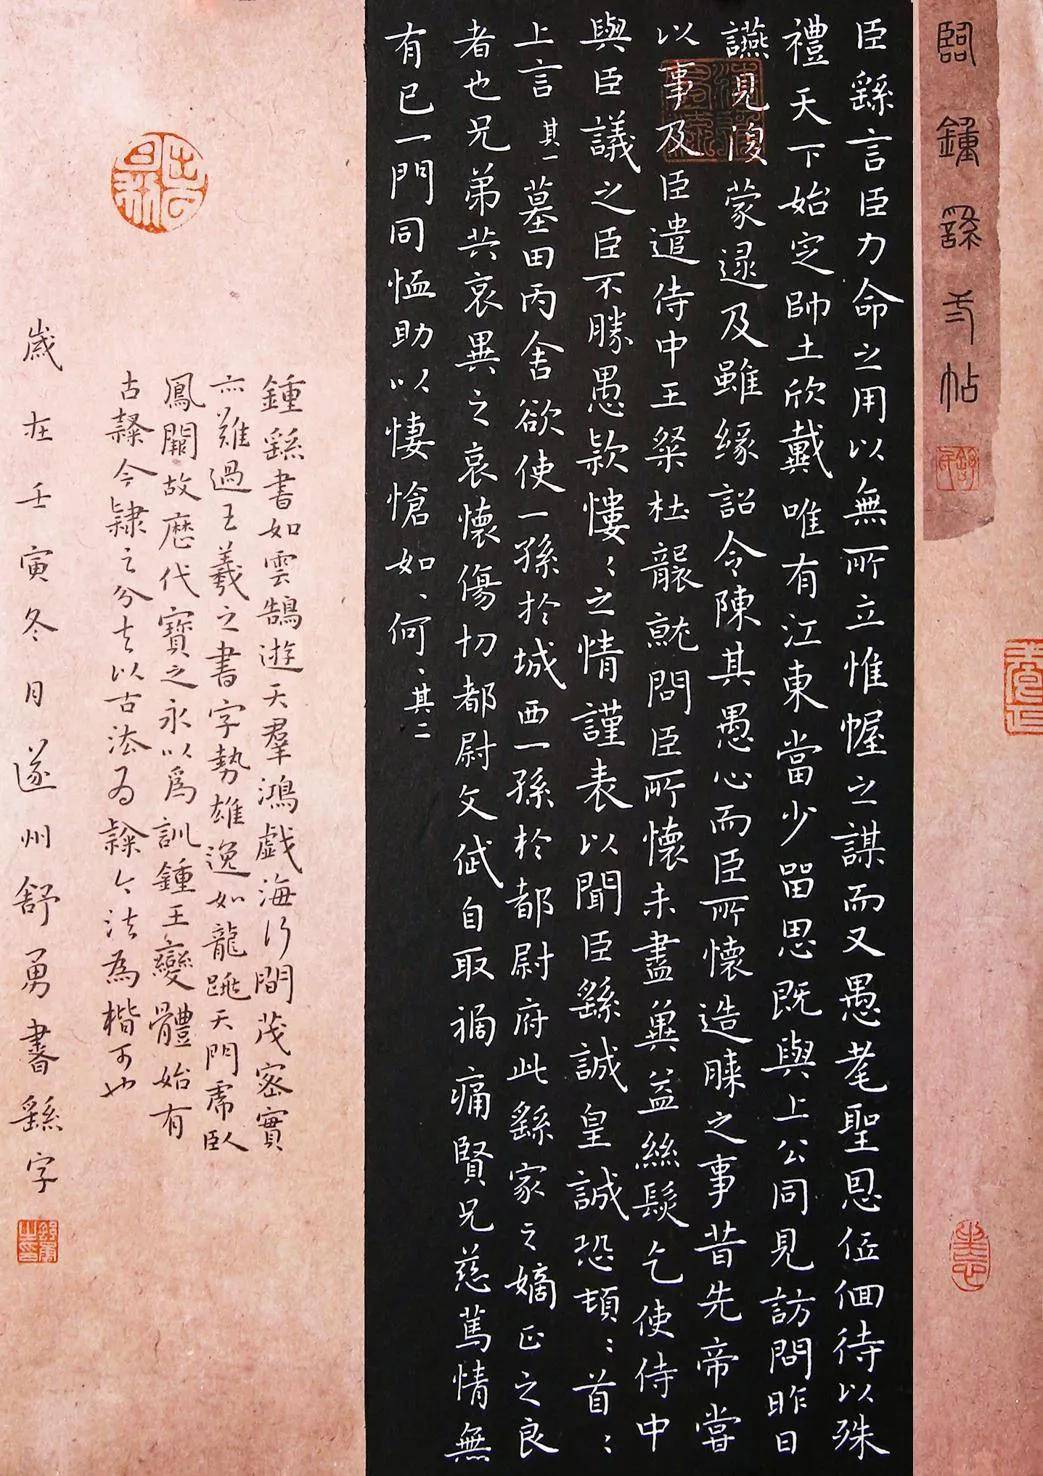 臨鍾繇二帖
臣繇言臣力命之用以無所立惟幄之謀而又愚耄聖恩低佪待以殊
禮天下始定帥土欣戴唯有江東當少留思既與上公同見訪問昨日
讌見復蒙逮及雖緣詔令陳其愚心而臣所懷造膝之事昔先帝嘗
以事及臣遣侍中王粲杜襲就問臣所懷未盡冀益絲髮乞使侍中
與臣議之臣不勝愚款慺〻之情謹表以聞臣繇誠皇誠恐頓〻首〻
上言其一墓田丙舍欲使一孫於城西一孫於都尉府此繇家之嫡正之良
者也兄弟共哀異之哀懷傷切都尉文武自取禍痛賢兄慈篤情無
有已一門同恤助以悽愴如〻何〻其二
鍾繇書如雲鵠遊天羣鴻戲海行間茂密實
亦難過王羲之書字勢雄逸如龍跳天門虎臥
鳳闕故歷代寶之永以為訓鍾王變體始有
古隸今隸之分夫以古法為隸今法為楷可也
歲在壬寅冬月遂州舒勇書繇字